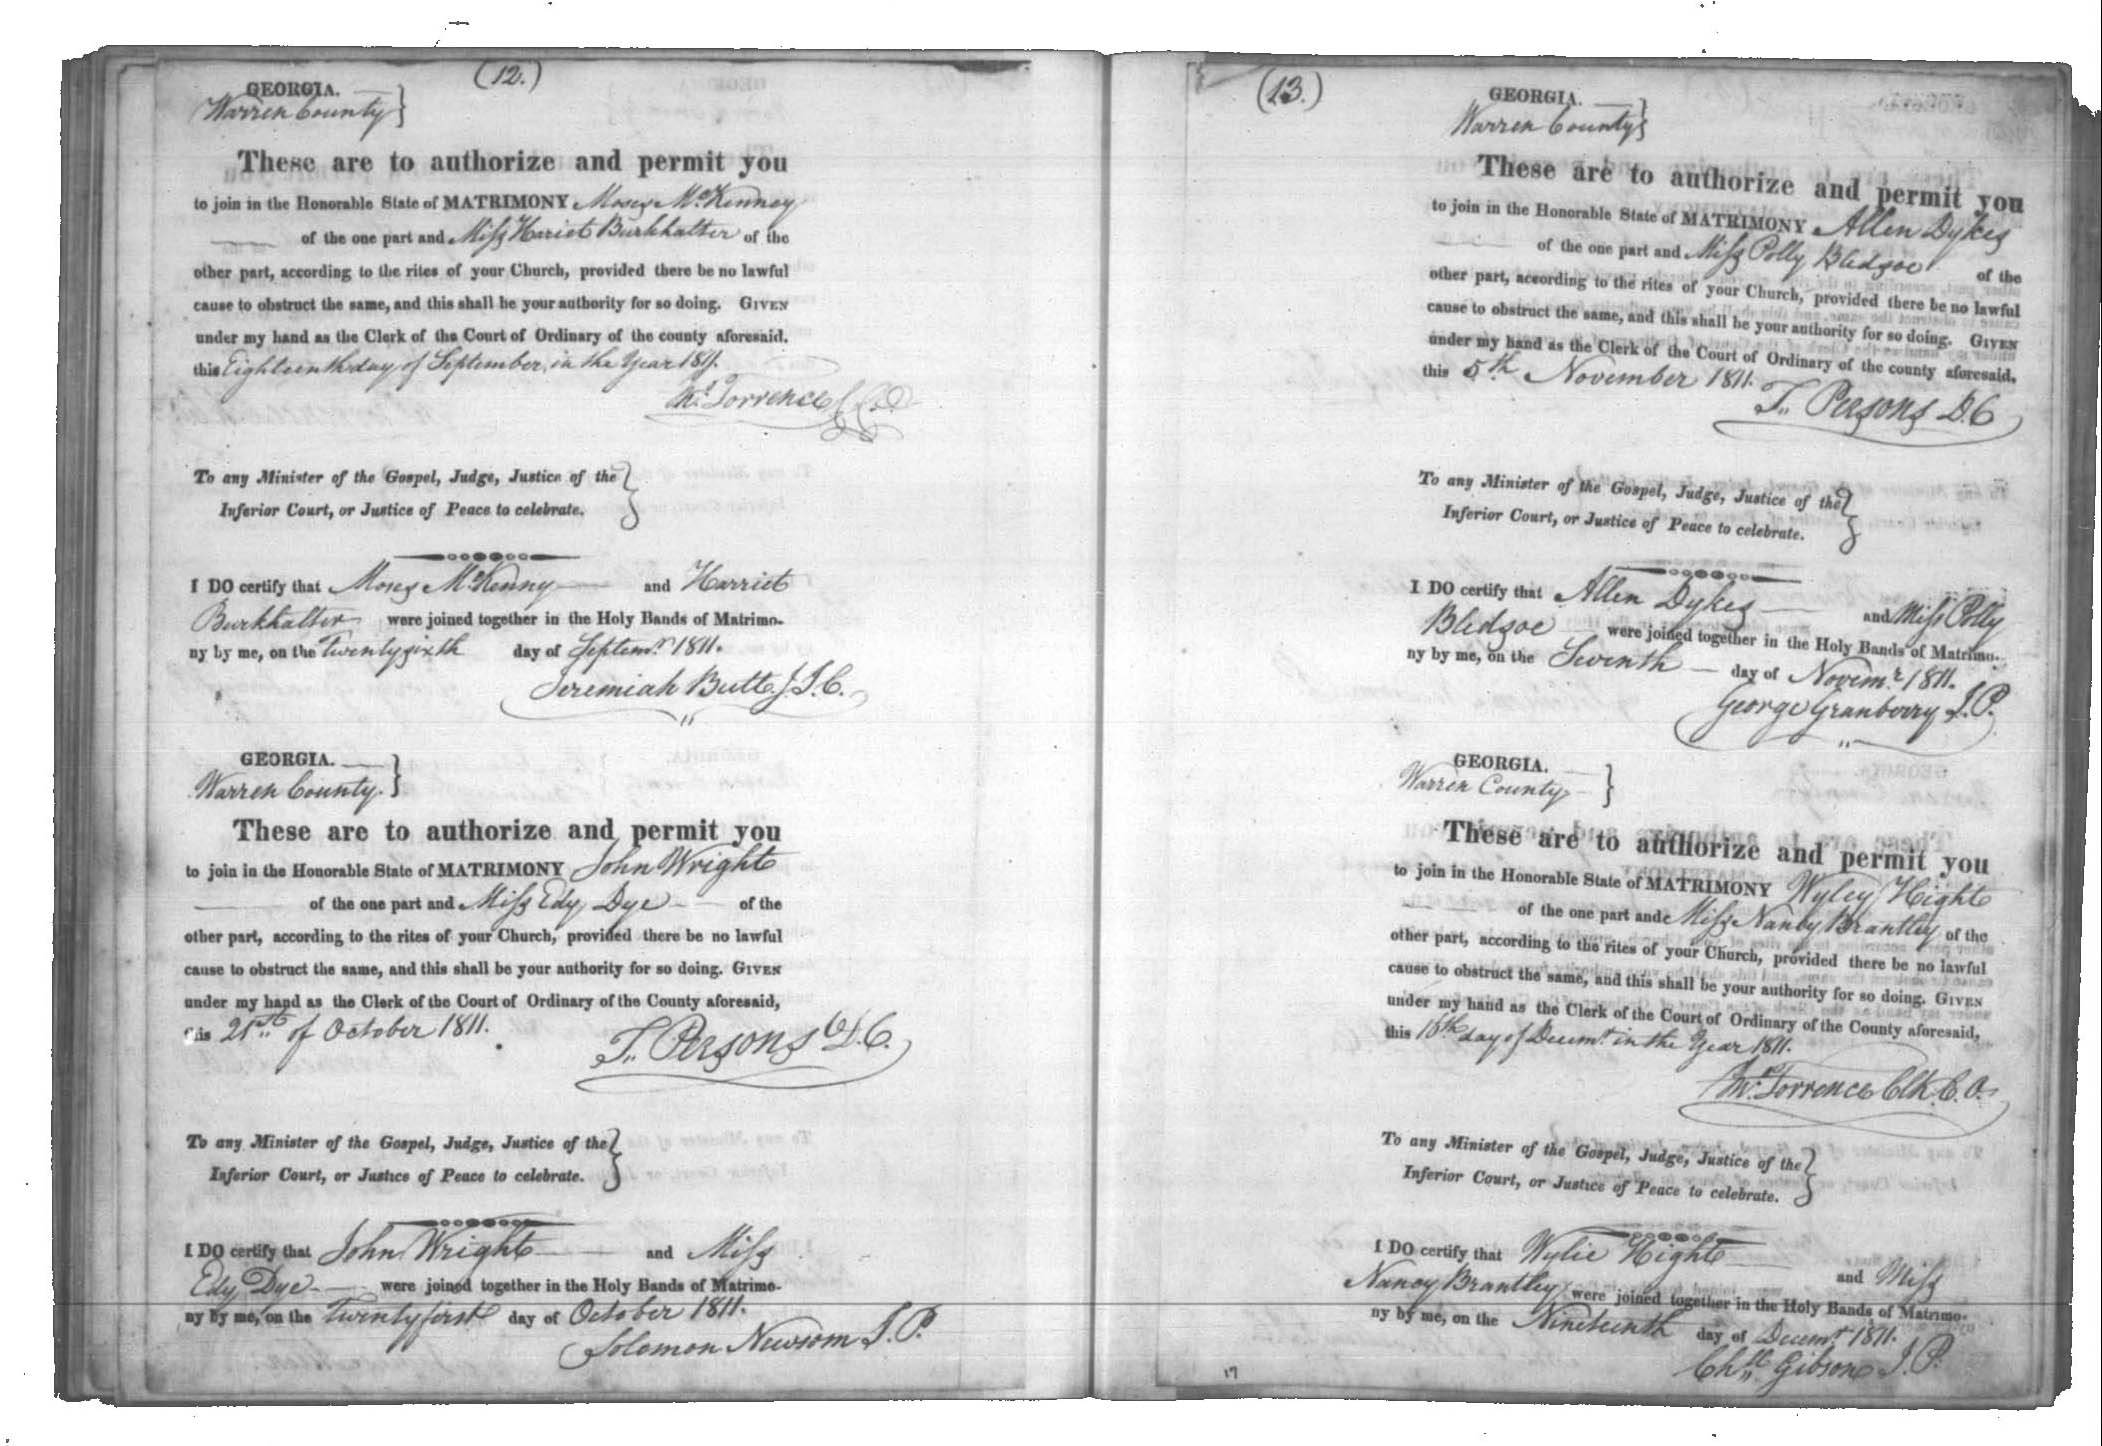 (12.)
GEORGIA.
Warren County
These are to authorize and permit you
to join in the Honorable State of MATRIMONY Moses McKenney
of the one part and Miss Hariet Burkhalter of the
other part, according to the rites of your Church, provided there be no lawful
cause to obstruct the same, and this shall be your authority for so doing. GIVEN
under my hand as the Clerk of the Court of Ordinary of the county aforesaid,
this Eighteenth day of September, in the Year 1811.
Torrence
To any Minister of the Gospel, Judge, Justice of the
Inferior Court, or Justice of Peace to celebrate.
I DO certify that Moses McKenny and Harriet
Burkhalter were joined together in the Holy Bands of Matrimo-
ny by me, on the Twenty sixth day of Septemr 1811.
Jeremiah Butt J.I.C.
GEORGIA.
Warren County.
These are to authorize and permit you
to join in the Honorable State of MATRIMONY John Wright
of the one part and Miss Edy Dye of the
other part, according to the rites of your Church, provided there be no lawful
cause to obstruct the same, and this shall be your authority for so doing. GIVEN
under my hand as the Clerk of the Court of Ordinary of the County aforesaid,
this 21st of October 1811.
T. Persons D.C.
To any Minister of the Gospel, Judge, Justice of the
Inferior Court, or Justice of Peace to celebrate.
I DO certify that John Wright and Miss
Edy Dye were joined together in the Holy Bands of Matrimo-
ny by me, on the Twenty first day of October 1811.
Solomon Newsom J.P.
(13.)
GEORGIA.
Warren County
These are to authorize and permit you
to join in the Honorable State of MATRIMONY Allen Dykes
of the one part and Miss Polly Bledsoe of the
other part, according to the rites of your Church, provided there be no lawful
cause to obstruct the same, and this shall be your authority for so doing. GIVEN
under my hand as the Clerk of the Court of Ordinary of the county aforesaid,
this 5th November 1811.
T. Persons D.C
To any Minister of the Gospel, Judge, Justice of the
Inferior Court, or Justice of Peace to celebrate.
I DO certify that Allen Dykes and Miss Polly
Bledsoe were joined together in the Holy Bands of Matrimo-
ny by me, on the Seventh day of Novemr 1811.
George Granberry J.P.
GEORGIA.
Warren County
These are to authorize and permit you
to join in the Honorable State of MATRIMONY Wyley Hight
of the one part and Miss Nancy Brantley of the
other part, according to the rites of your Church, provided there be no lawful
cause to obstruct the same, and this shall be your authority for so doing. GIVEN
under my hand as the Clerk of the Court of Ordinary of the County aforesaid,
this day of Decemr in the Year 1811.
Torrence Clk.C.O.
To any Minister of the Gospel, Judge, Justice of the
Inferior Court, or Justice of Peace to celebrate.
I DO certify that Wylie Hight and Miss
Nancy Brantley were joined together in the Holy Bands of Matrimo-
ny by me, on the Nineteenth day of Decemr 1811.
Gibson J.P.
17